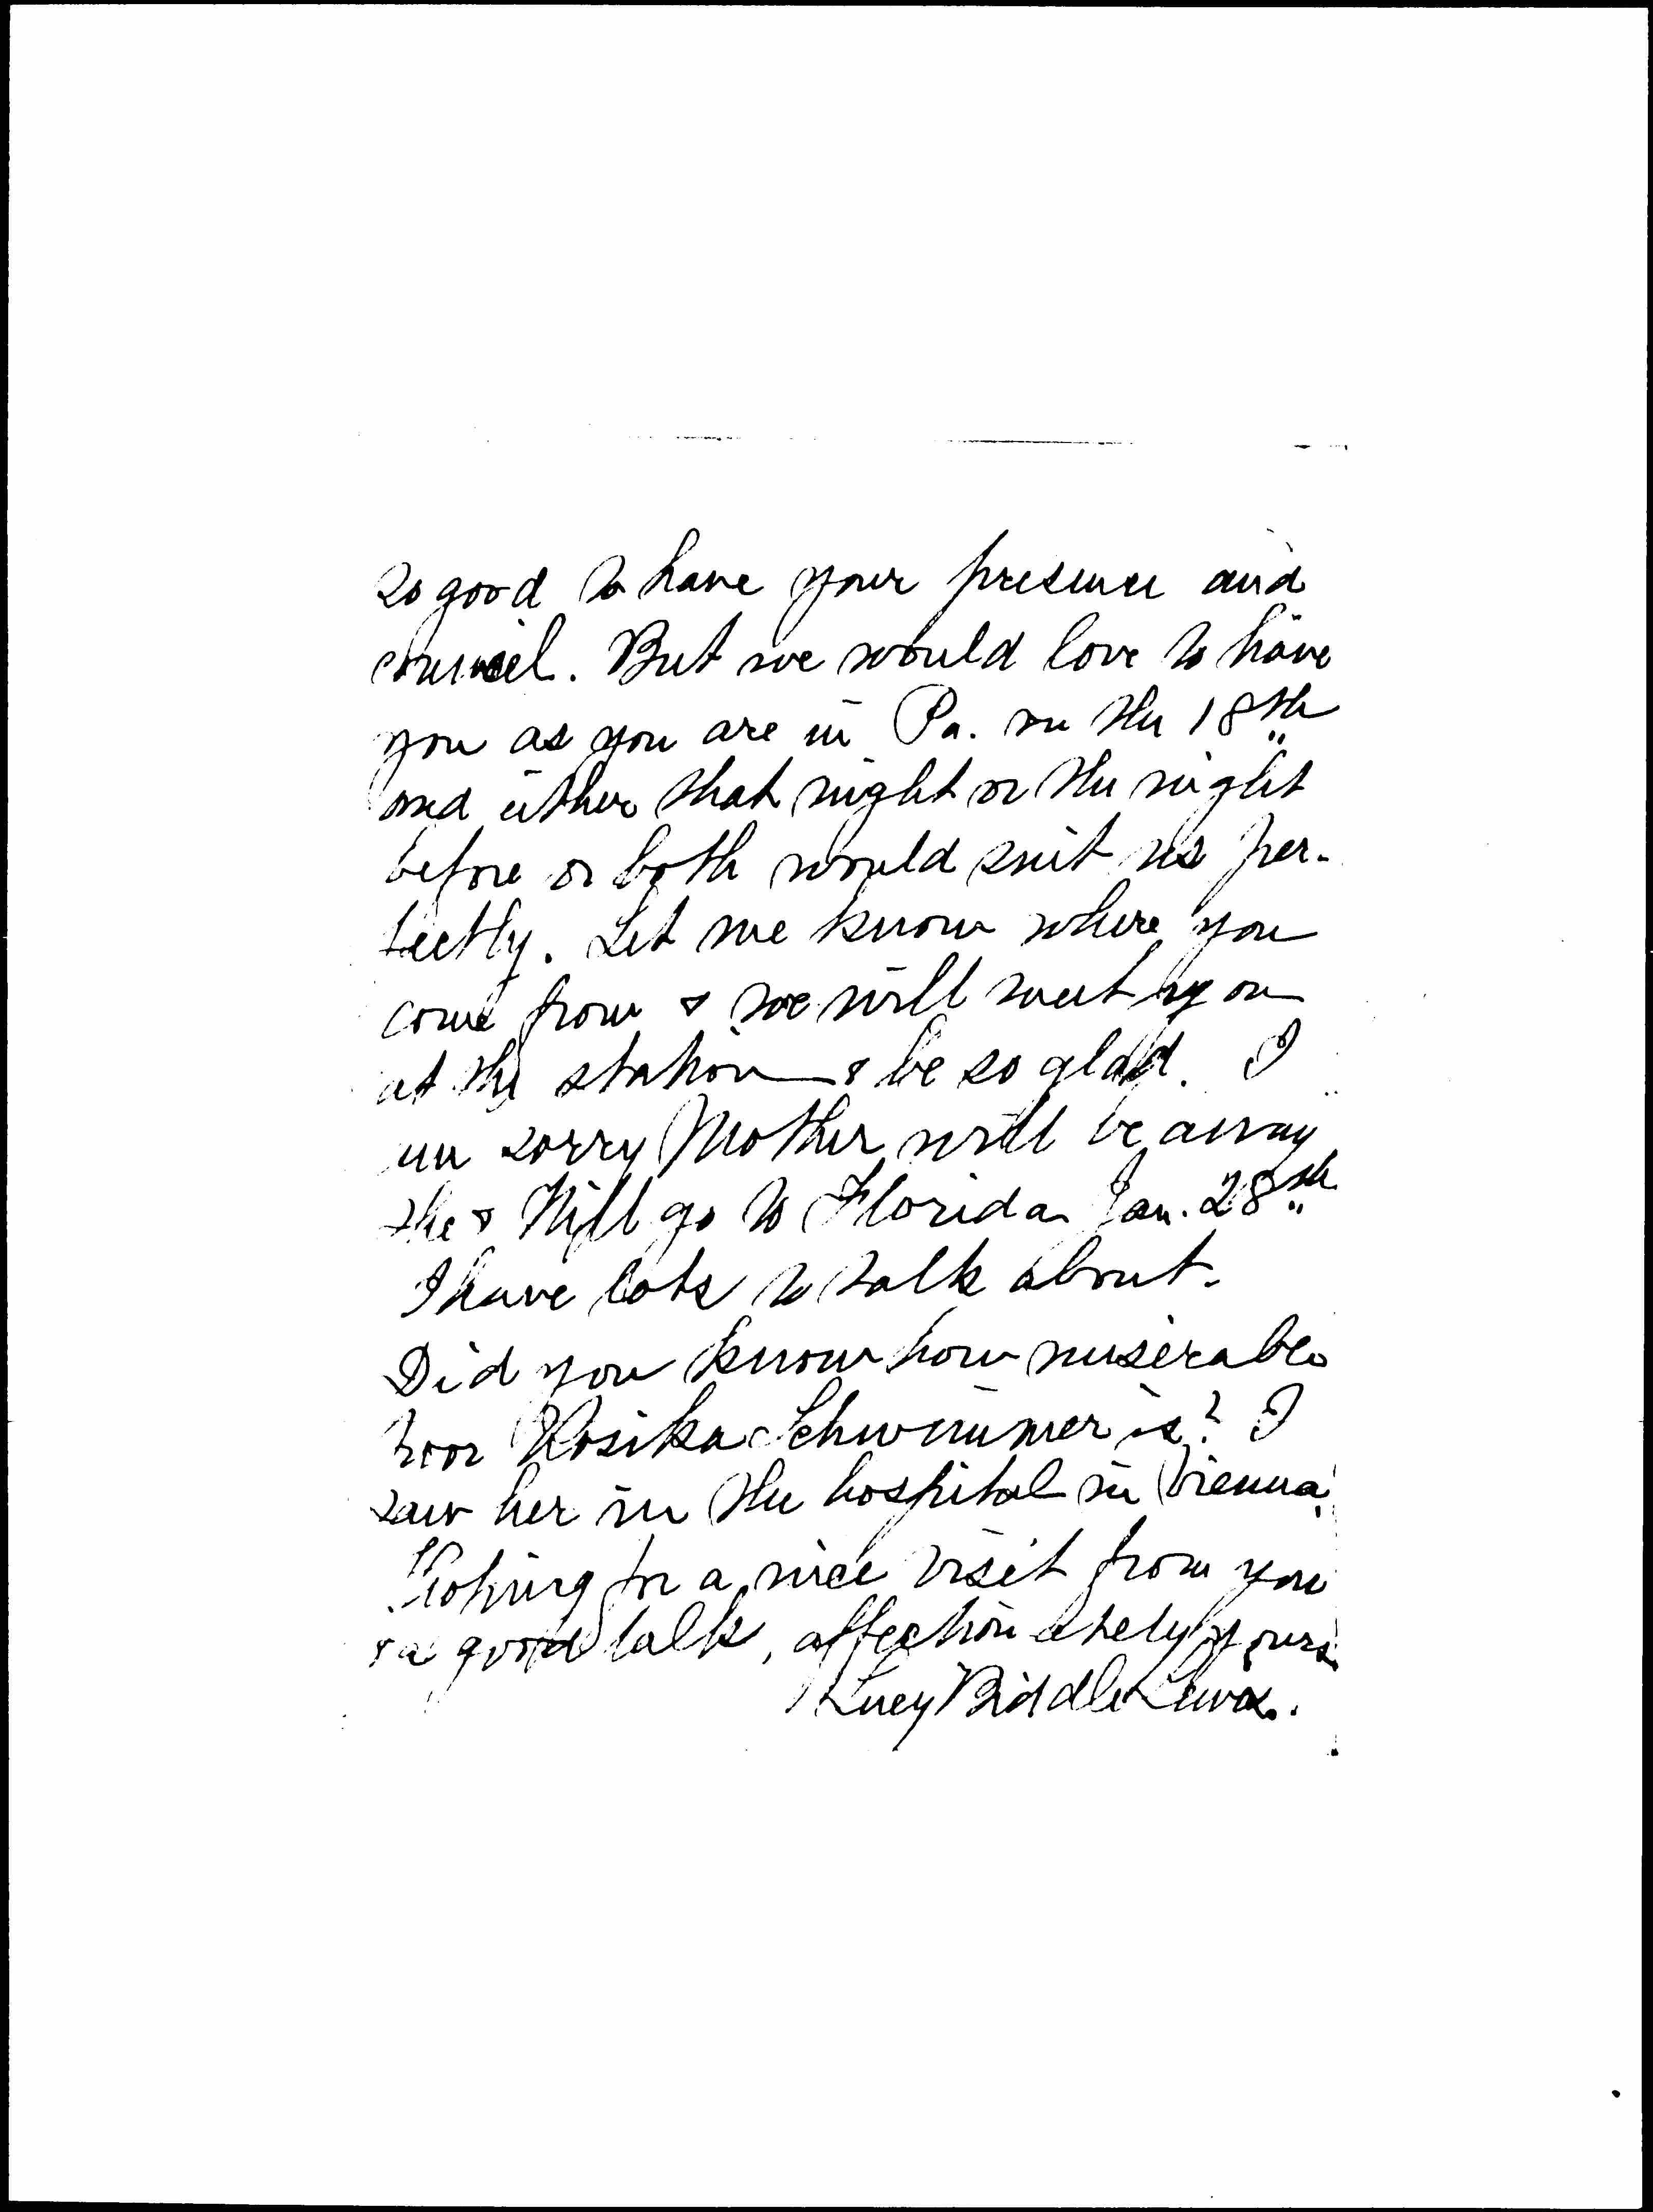 so good to have your presence and
council. But we would love to have
you as you are in Pa. on the 18th
and either that night or the night
before or both would suit us per-
fectly. Let me know where you
come from & we will meet you
at the station & be so glad. I
am sorry Mother will be away
she & Will go to Florida Jan. 28th
I have lots to talk about.
Did you know how miserable
poor Rosika Schwimmer is? I
saw her in the hospital in Vienna.
Hoping for a nice visit from you
& a good talk, affectionately yours
Lucy Biddle Lewis.